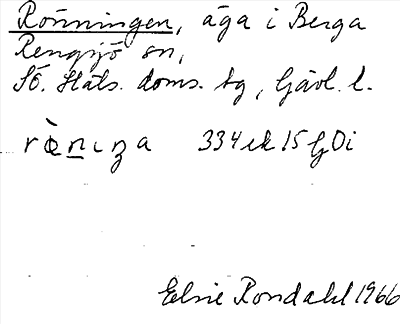 Rönningen, äga i Berga
Rengsjö sn,
Sö. Häls. doms. tg, Gävl. l.
rö̀nıŋa 334 ek 15 GDi
Elsie Rondahl 1966